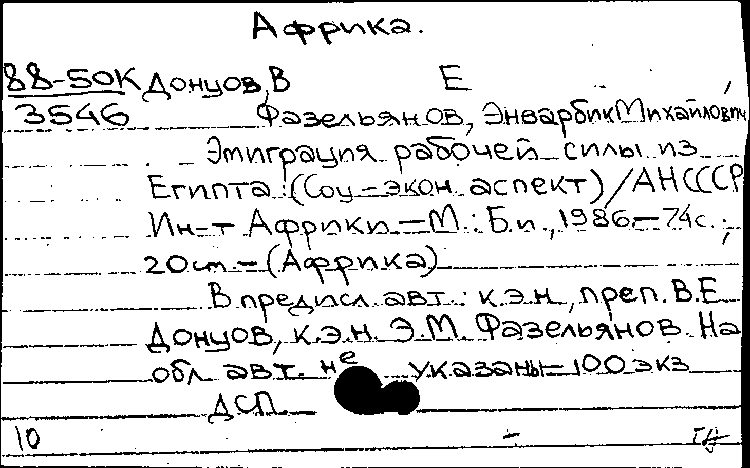 Африка.
88-50К Донцов, В Е
3546 Фазельянов, Энварбик Михайлович
Эмиграция рабочей силы из
Египта: (Соц-экон. аспект) / АН СССР
Ин-т Африки. — М.: Б.и., 1986 — 74с.;
20см — (Африка)
В предисл. авт.: к.э.н., преп. В.Е
Донцов, к.э.н. Э.М. Фазельянов. На
обл авт. не указаны — 100 экз
ДСП
10 —